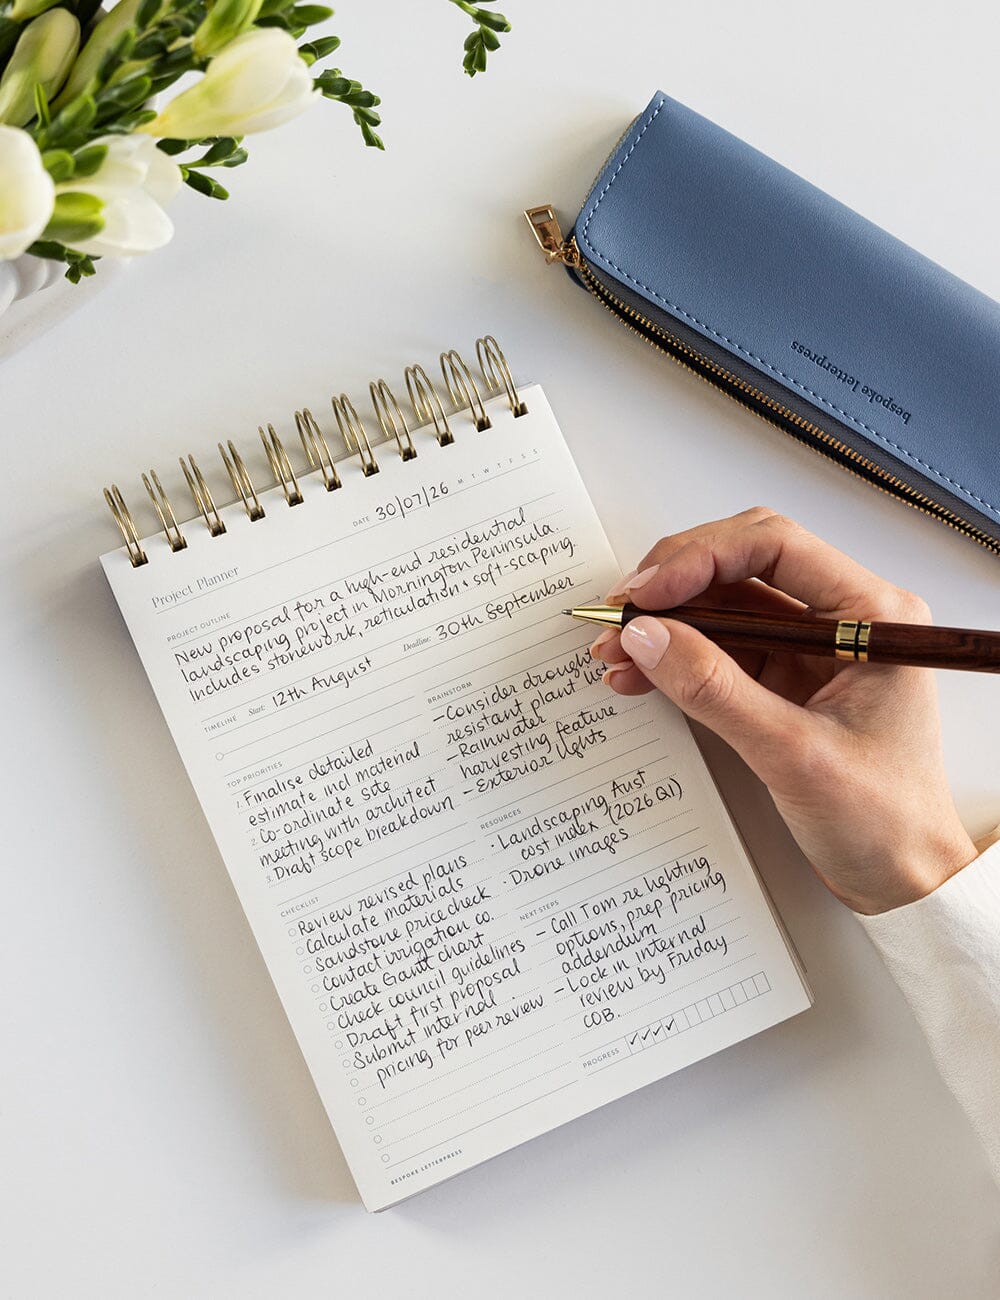 bespoke letterpress
DATE 30/07/26 M T W T F S S
Project Planner
PROJECT OUTLINE
New proposal for a high-end residential
landscaping project in Mornington Peninsula.
Includes stonework, reticulation + soft-scaping.
TIMELINE Start: 12th August Deadline: 30th September
TOP PRIORITIES
1. Finalise detailed
estimate incl material
2. Co-ordinate site
meeting with architect
3. Draft scope breakdown
BRAINSTORM
-Consider drought
resistant plant list
-Rainwater
harvesting feature
-Exterior lights
RESOURCES
· Landscaping Aust
cost index (2026 Q1)
· Drone images
CHECKLIST
Review revised plans
Calculate materials
Sandstone price check
Contact irrigation co.
Create Gantt chart
Check council guidelines
Draft first proposal
Submit internal
pricing for peer review
NEXT STEPS
- Call Tom re lighting
options, prep pricing
addendum
- Lock in internal
review by Friday
COB.
PROGRESS ✓✓✓✓
BESPOKE LETTERPRESS